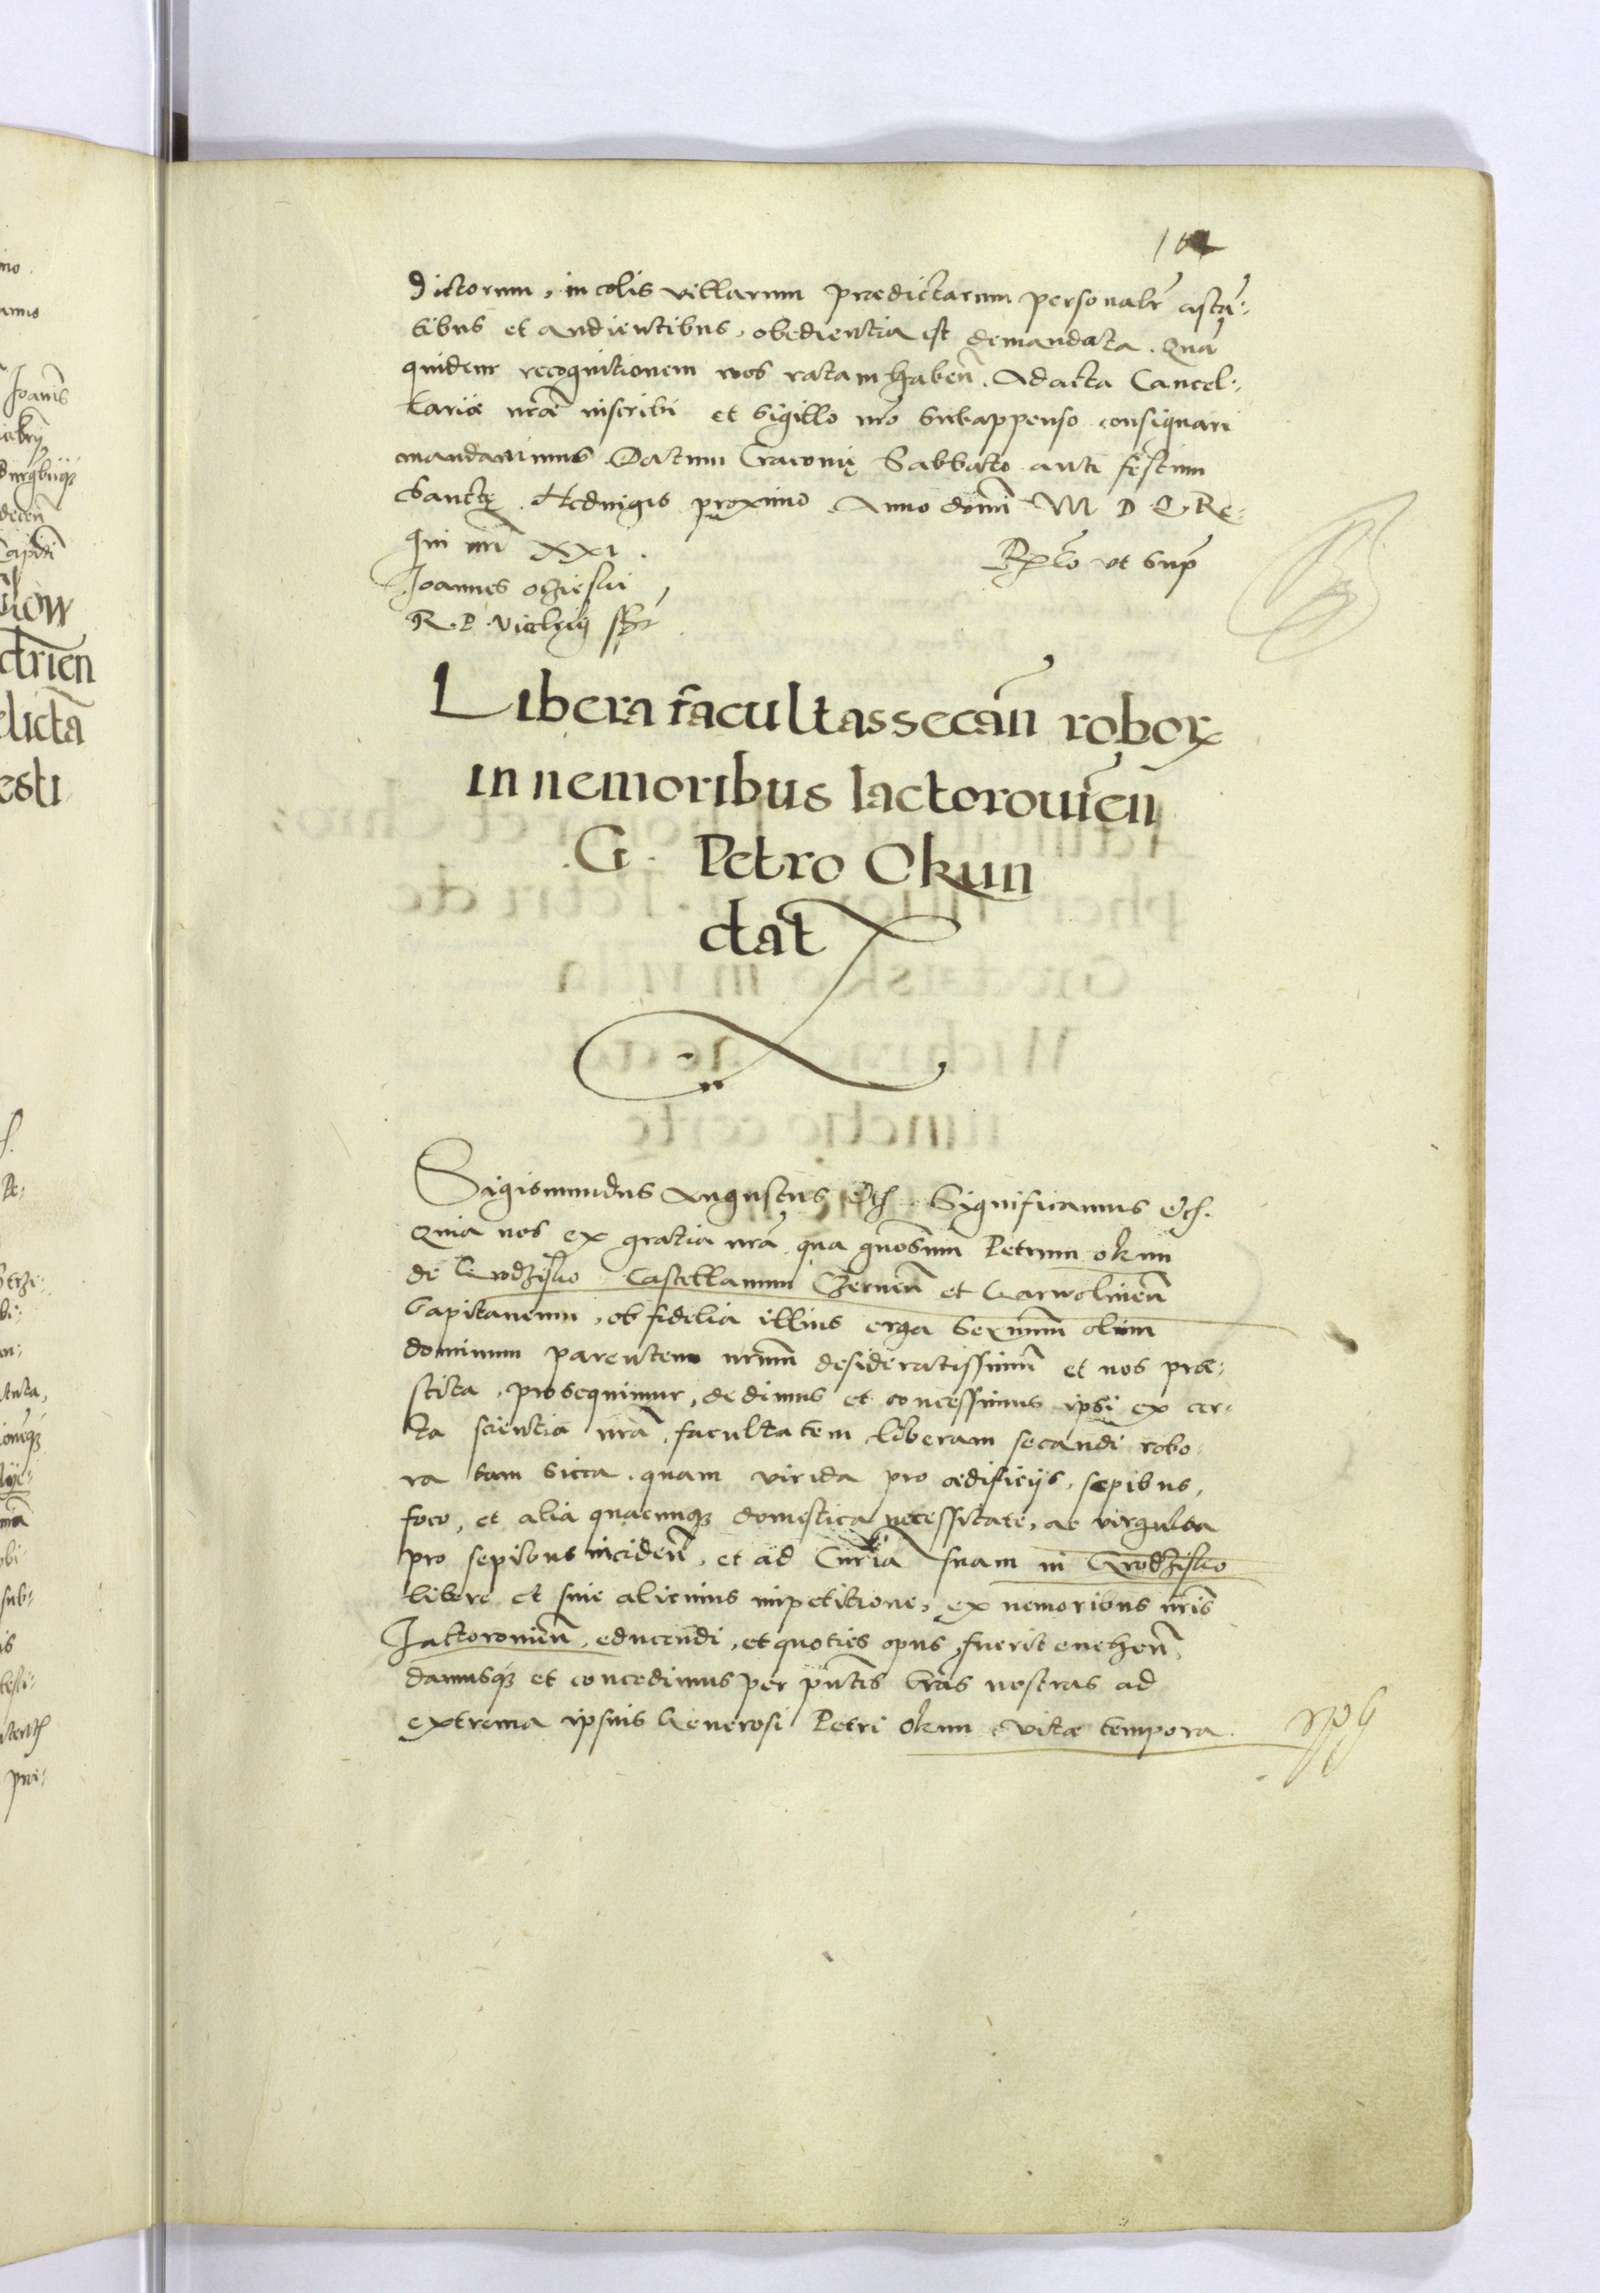 dictorum, incolis villarum praedictarum personalr̃ astã:
tibus et audientibus, obedientia est demandata. Quã
quidem recognitionem nos ratam habeñ. Ad acta Cancel:
lariæ nr̃æ inscribi et sigillo nr̃o subappenso consignari
mandavimus. Datum Cracovię Sabbato ante festum
Sanctę Hedvigis proximo. Anno domĩ M D L. Re:
gni nr̃i XXI.
Rel̃o ut supr̃
Joannes oczieski
R. P. Vicecñ sst̃
Libera facultas secañ robor
in nemoribus Iactorovieñ
G. Petro Okun
dat̃
Sigismundus Augustus etc̃. Significamus etc̃.
Quia nos ex gratia nr̃a, qua gnosum Petrum okun
de Grodzisko Castellanum Czerneñ et Garwolineñ
Capitaneum, ob fidelia illius erga Serm̃um olim
dominum parentem nr̃um desideratissimũ et nos præ:
stita, prosequimur, dedimus et concessimus ipsi ex cer:
ta scientia nr̃a, facultatem liberam secandi robo:
ra tam sicca, quam virida pro ædificijs, sepibus,
foco, et alia quacunq domestica necessitate, ac virgulta
pro sepibus incideñ, et ad Curia suam in Grodzisko
libere et sine alicuius impetitione, ex nemoribus nr̃is
Jactorovieñ, educendi, et quoties opus fuerit eveheñ,
damusq et concedimus per pñtes lr̃as nostras ad
extrema ipsius Generosi Petri Okun vitæ tempora.